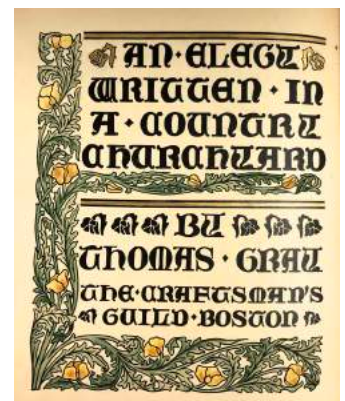 AN·ELEGY
WRITTEN·IN
A·COUNTRY
CHURCHYARD
BY
THOMAS·GRAY
THE·CRAFTSMAN'S
GUILD·BOSTON